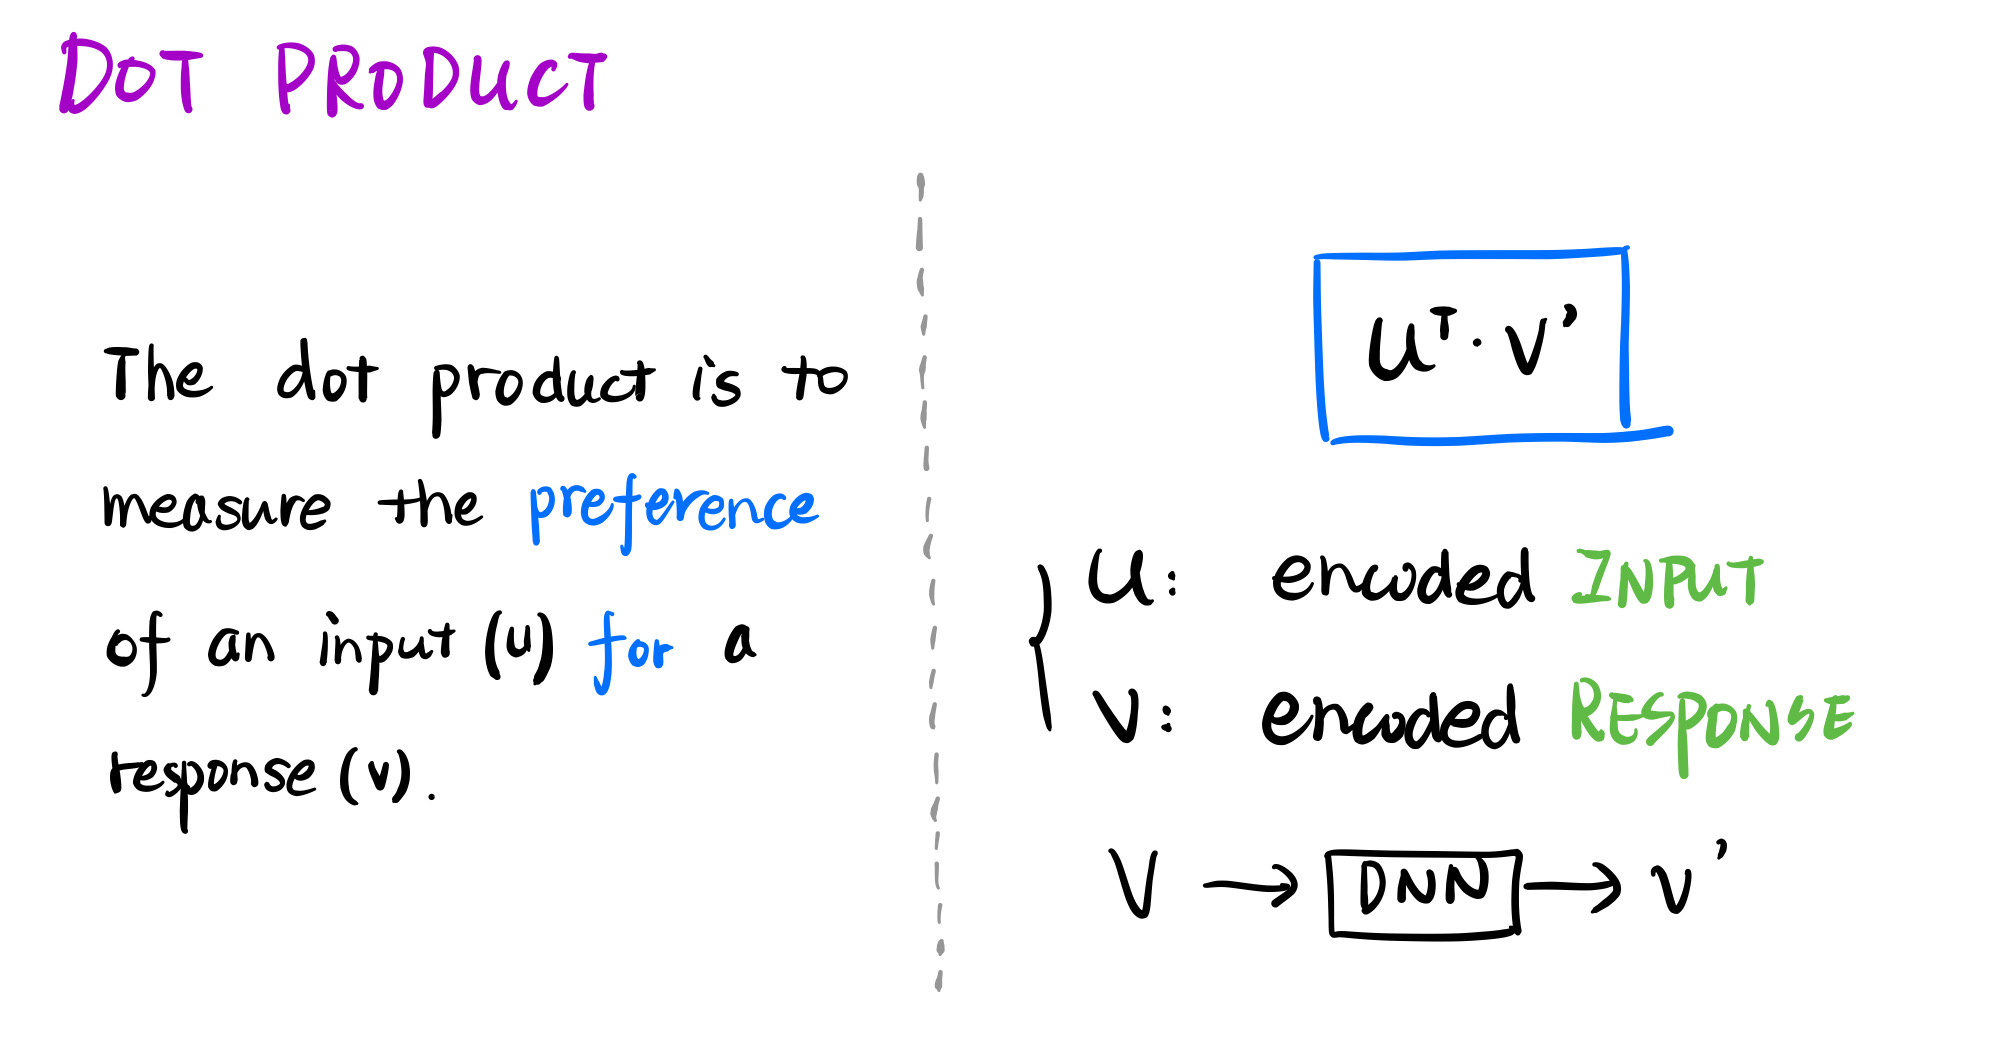 DOT PRODUCT
The dot product is to
measure the preference
of an input (u) for a
response (v).
uᵀ · v’
u: encoded INPUT
v: encoded RESPONSE
V → DNN → v’